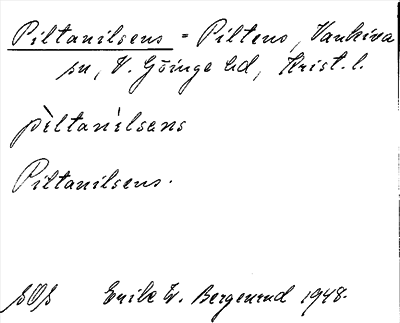 Piltanilsens = Piltens, Vankiva
sn, V. Göinge hd, Krist. l.
pìltanìlsens
Piltanilsens.
SOS Erik W. Bergerud 1948.